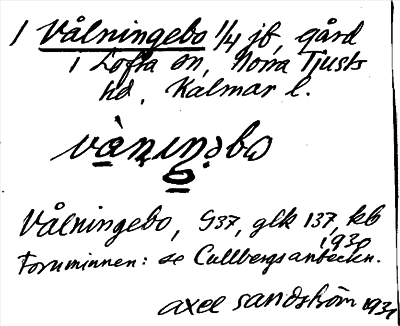 1 Vålningebo 1/4 jb, gård
i Lofta sn, Norra Tjusts
hd, Kalmar l.
vànıŋəbo
Vålningebo, G37, glk 137, kb
1930
Fornminnen: se Cullbergs anteckn.
Axel Sandström 1931